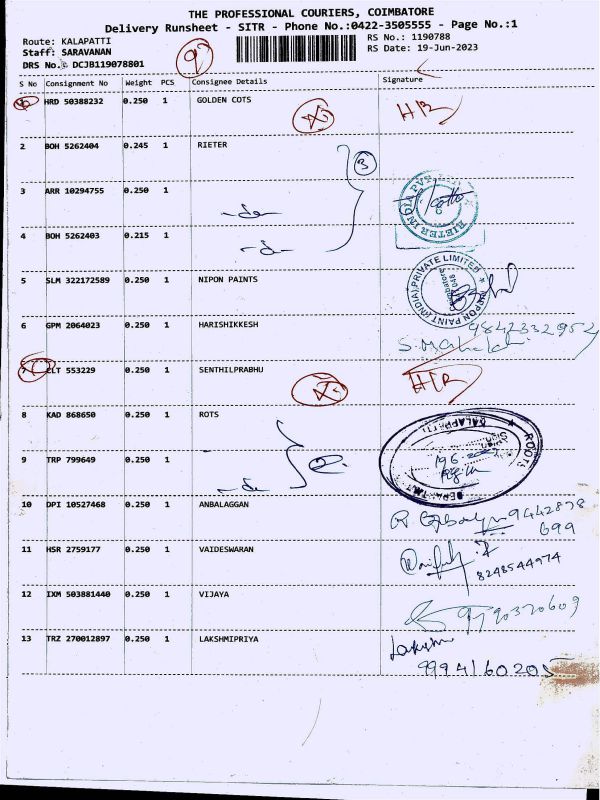 THE PROFESSIONAL COURIERS, COIMBATORE
Delivery Runsheet - SITR - Phone No.:0422-3505555 - Page No.:1
Route: KALAPATTI
RS No.: 1190788
Staff: SARAVANAN
RS Date: 19-Jun-2023
DRS No.: DCJB119078801
9
S No Consignment No Weight PCS Consignee Details Signature
HRD 50388232 0.250 1 GOLDEN COTS
2 BOH 5262404 0.245 1 RIETER
3
3 ARR 10294755 0.250 1 -do-
RIETER INDIA PVT.
4 BOH 5262403 0.215 1 -do-
5 SLM 322172589 0.250 1 NIPON PAINTS
NIPPON PAINT (INDIA) PRIVATE LIMITED
6 GPM 2064023 0.250 1 HARISHIKKESH 9842332952
7 ELT 553229 0.250 1 SENTHILPRABHU
8 KAD 868650 0.250 1 ROTS
ROOTS
KALAPATTI
9 TRP 799649 0.250 1 -do- 2
10 DPI 10527468 0.250 1 ANBALAGGAN 9442878
699
11 HSR 2759177 0.250 1 VAIDESWARAN
8248544974
12 IXM 503881440 0.250 1 VIJAYA 9790370609
13 TRZ 270012897 0.250 1 LAKSHMIPRIYA Lakshmi
9994160205